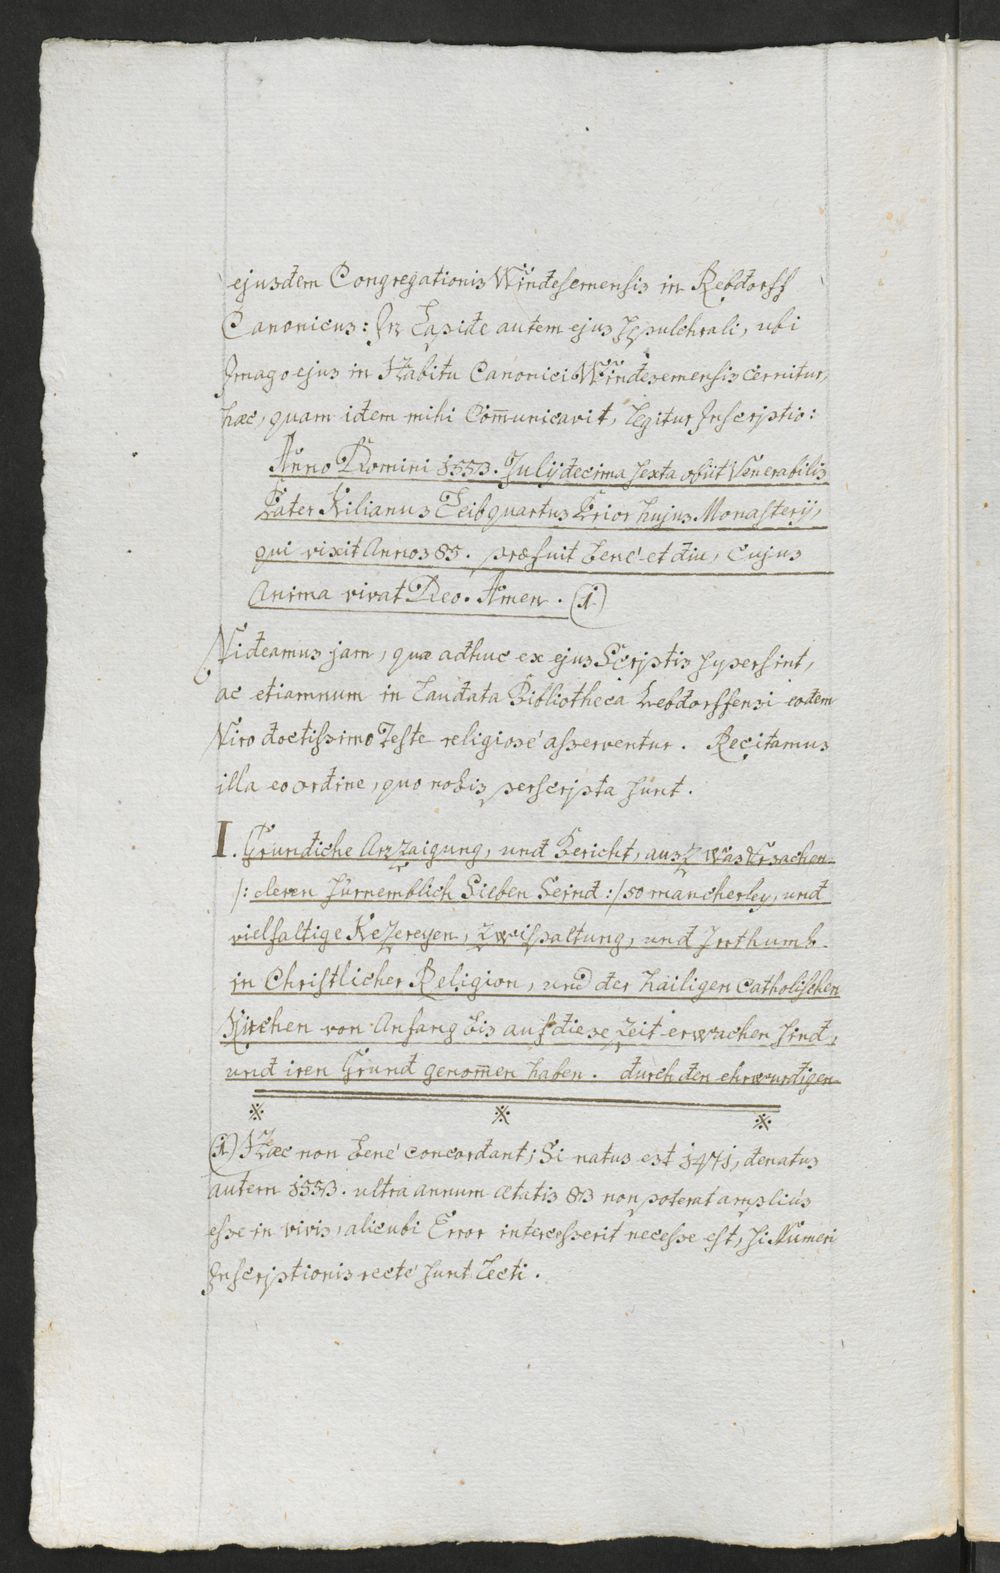 ejusdem Congregationis Windesemensis in Rebdorff
Canonicus: In Lapide autem ejus sepulchrali, ubi
Imago ejus in Habitu Canonici Windesemensis cernitur,
hæc, quam idem mihi Com̄unicavit, legitur Inscriptio:
Anno Domini 1553. Julij decima sexta obiit Venerabilis
Pater Kilianus Leib quartus Prior hujus Monasterij,
qui vixit Annos 85. præfuit bene et diu, Cujus
Anima vivat Deo. Amen. (1)
Videamus jam, quæ adhuc ex ejus Scriptis supersint,
ac etiamnum in laudata Bibliotheca Rebdorffensi eodem
Viro doctissimo Teste religiosè asserventur. Recitamus
illa eo ordine, quo nobis perscripta sunt.
I. Grundtliche Anzaigung, und Bericht, ausz was Ursachen
/: deren fürnemblich Sieben Seind :/ so mancherley, und
vielfaltige Kezereyen, zwispaltung, und Irrthumb
in Christlicher Religion, und der hailigen Catholischen
Kirchen von Anfang bis auf diese zeit erwachen sind,
und iren Grund genom̄en haben. durch den ehrwurdigen
(1) Hæc non benè concordant; Si natus est 1471, denatus
autem 1553. ultra annum ætatis 83 non poterat ampliùs
esse in vivis, alicubi Error intercesserit necesse est, si Numeri
Inscriptionis rectè sunt lecti.